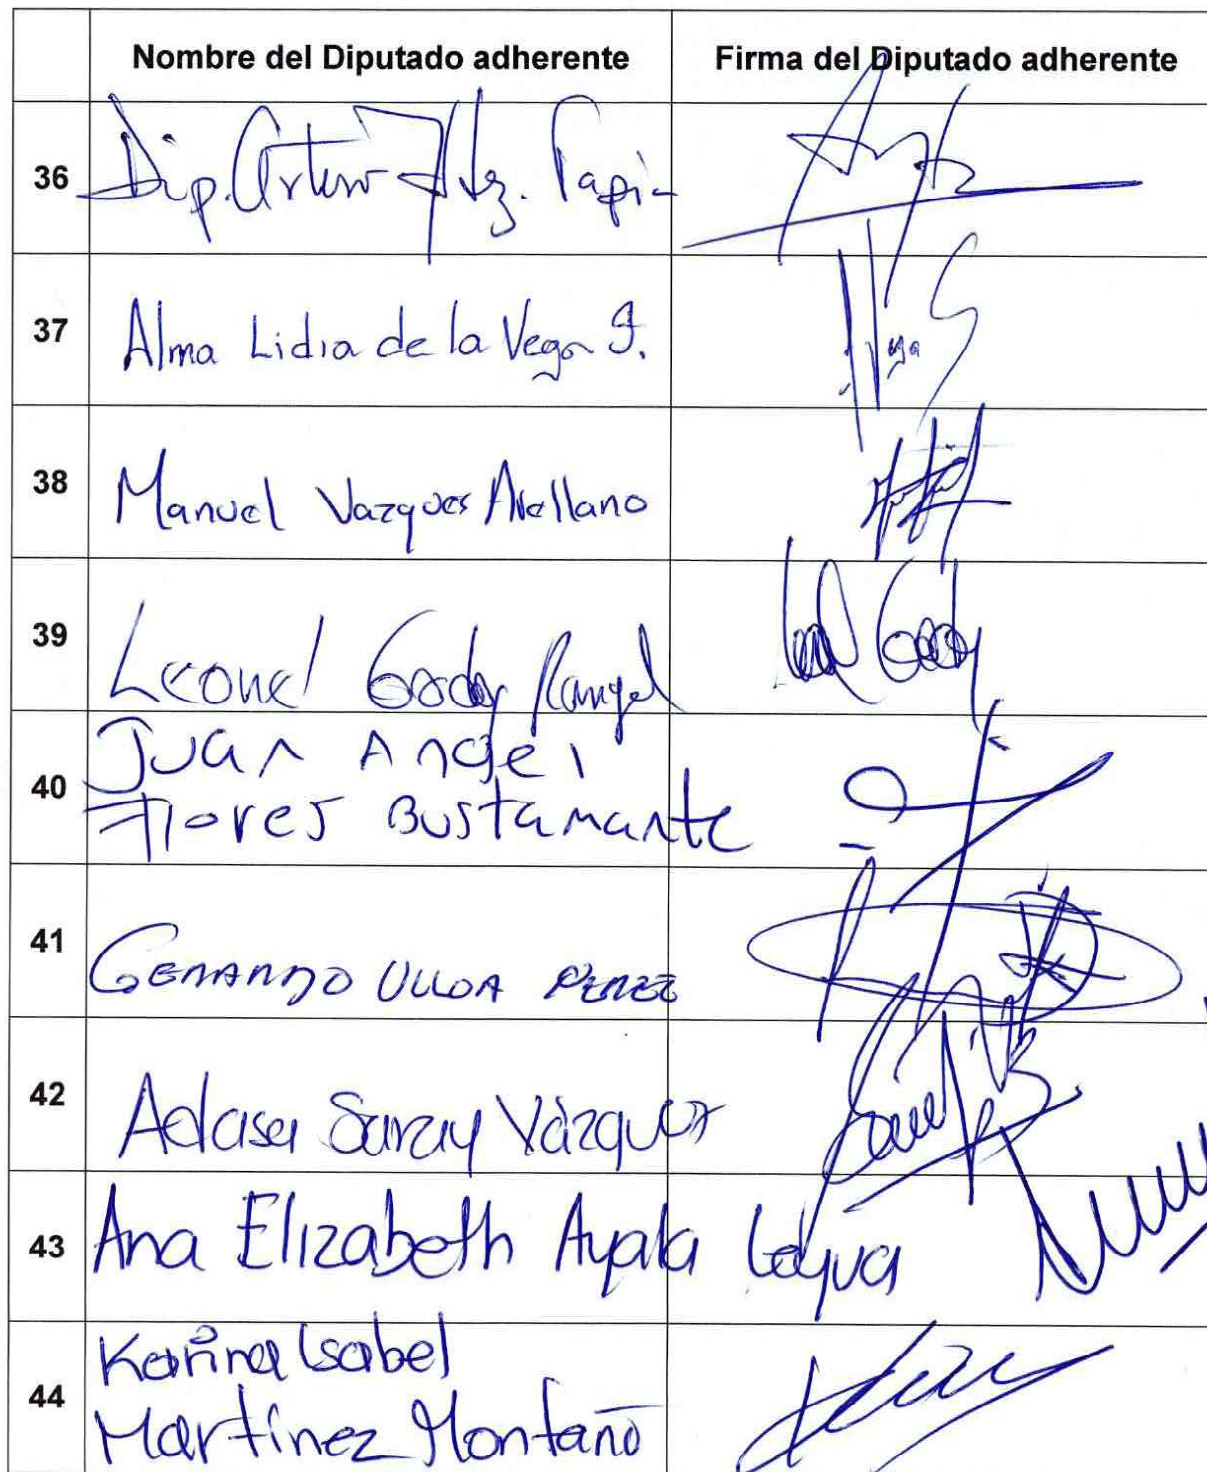 Nombre del Diputado adherente Firma del Diputado adherente
36 Dip. Arturo Hdz. Tapia
37 Alma Lidia de la Vega S. Vega
38 Manuel Vazquez Arellano
39 Leonel Godoy Rangel Leonel Godoy
40 Juan Angel
Flores Bustamante
41 GERARDO ULLOA PEREZ
42 Adasa Saray Vázquez
43 Ana Elizabeth Ayala Leyva
44 Karina Isabel
Martínez Montaño